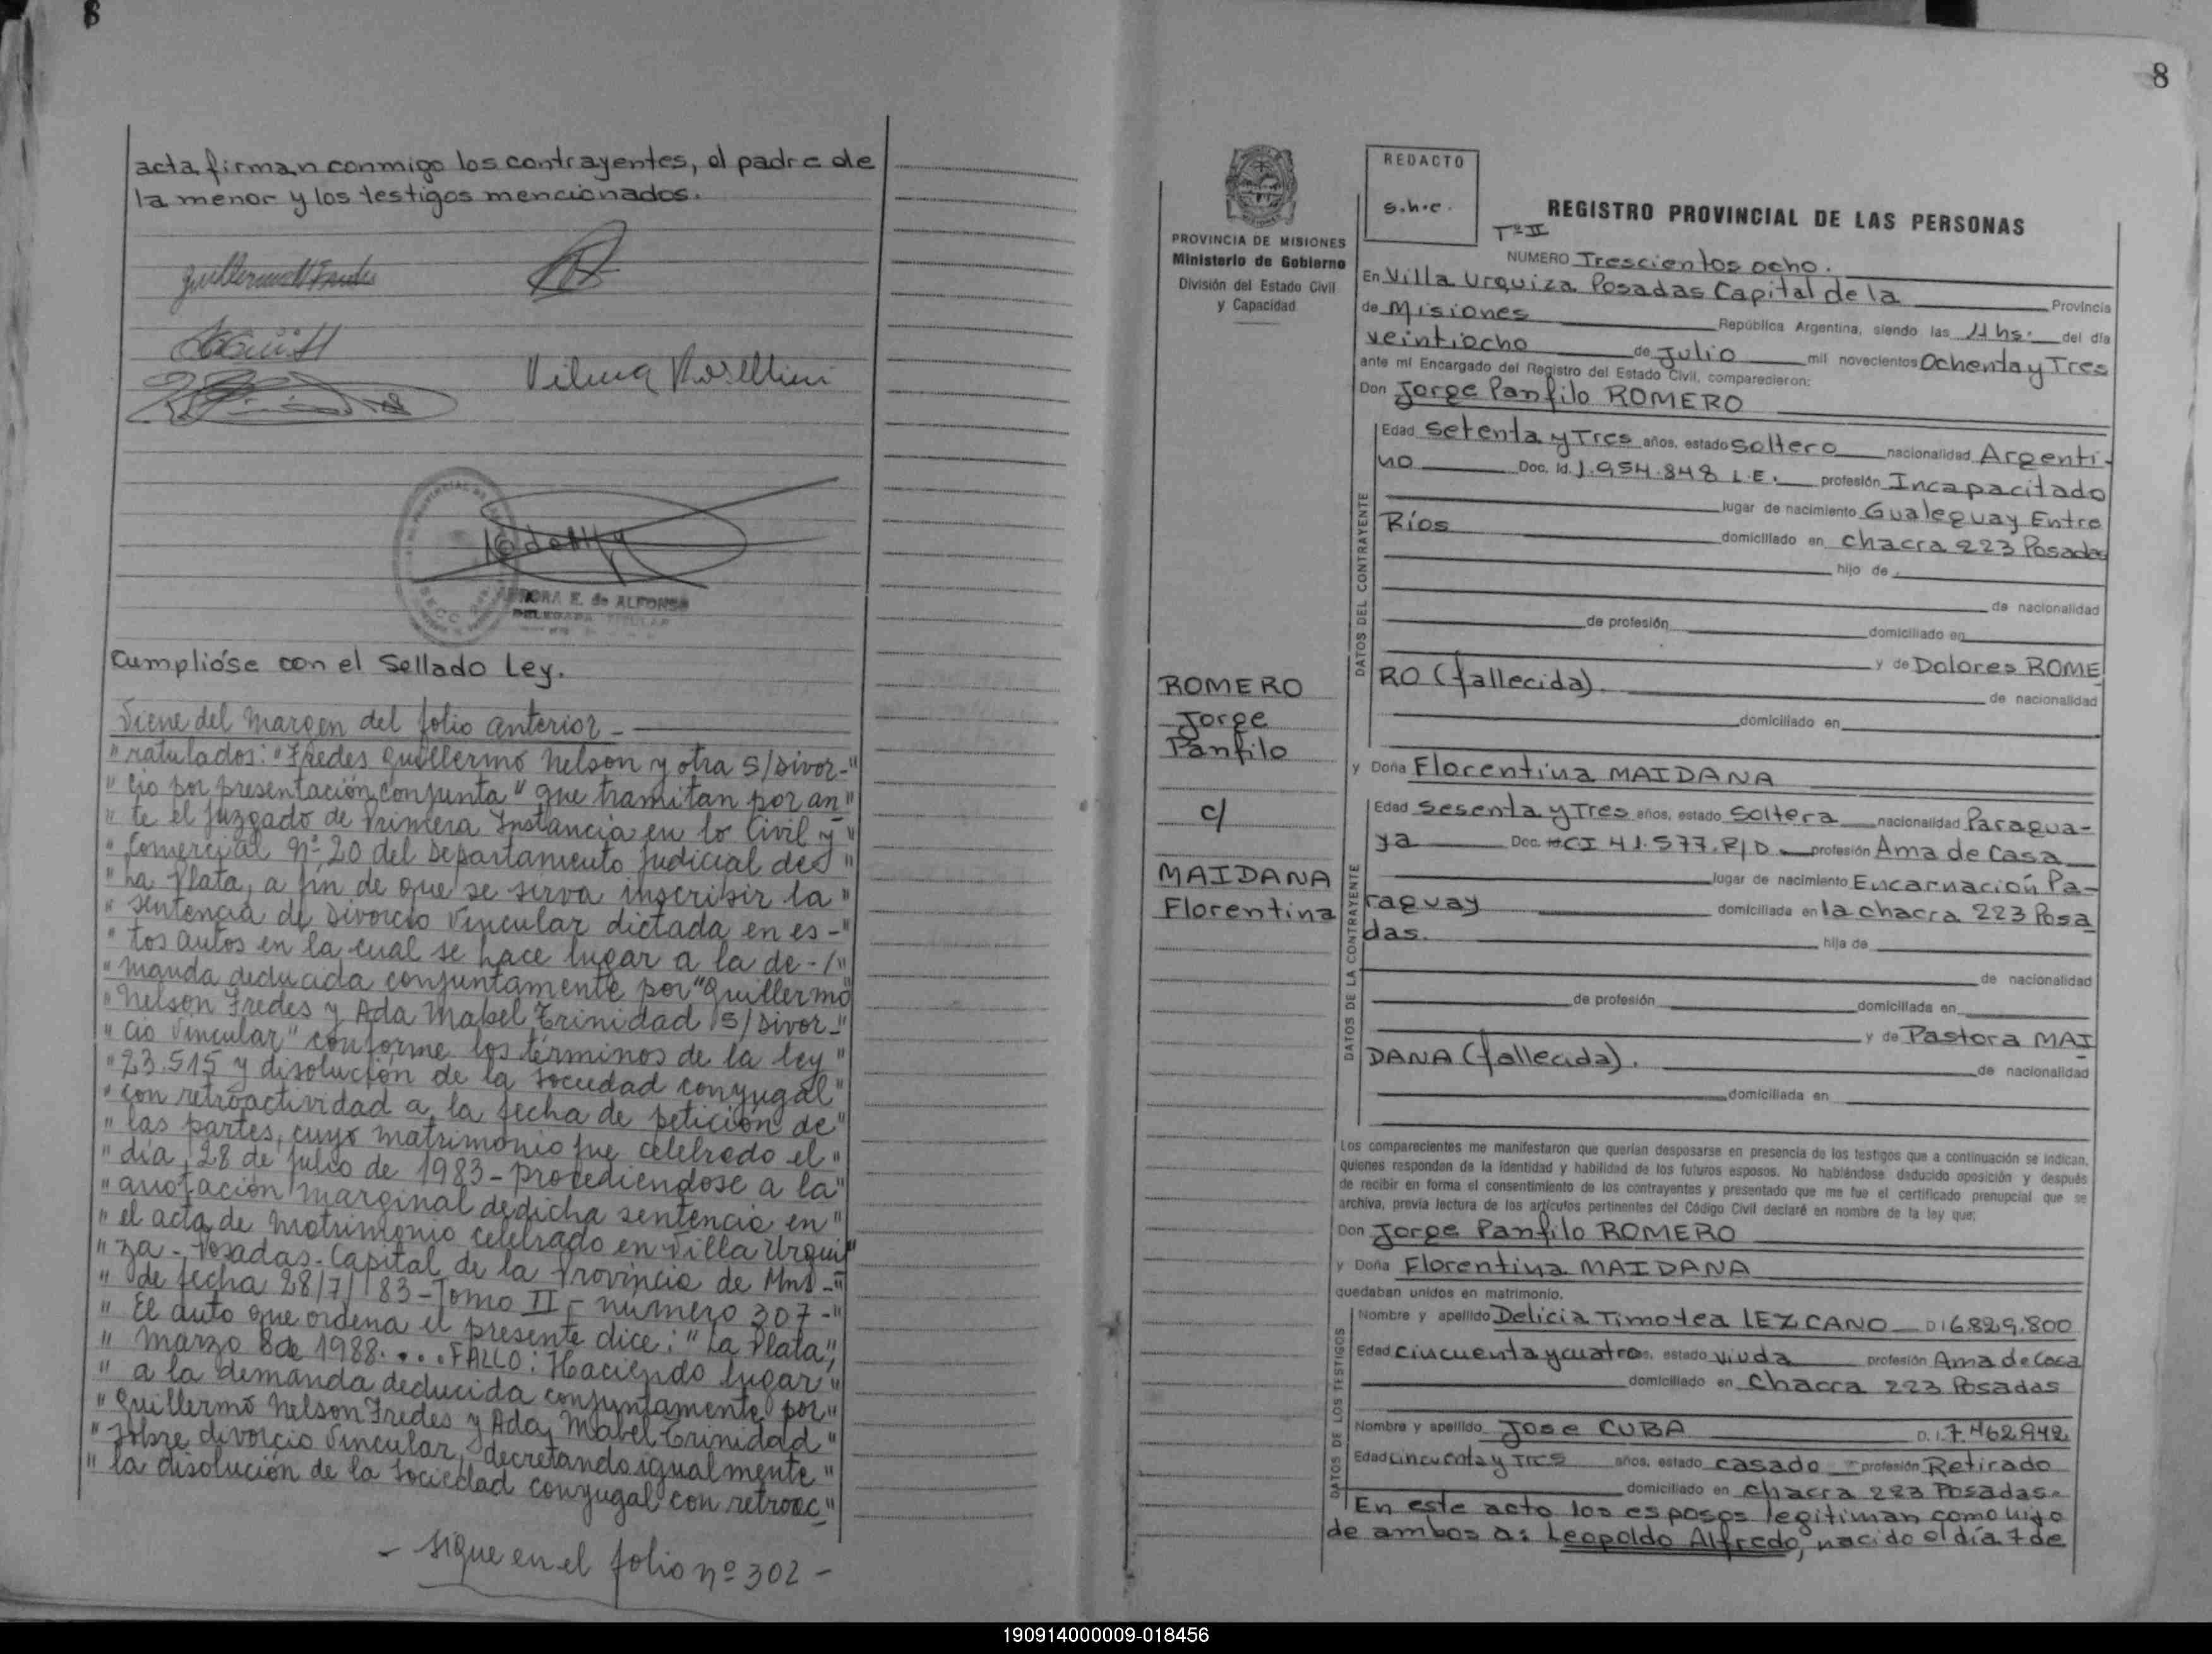 8
acta firman conmigo los contrayentes, el padre de
la menor y los testigos mencionados.
Vilma Rosellini
AURORA E. de ALFONSO
DELEGADA TITULAR
Cumplióse con el Sellado Ley.
Viene del margen del folio anterior -
" ratulados: "Fredes Guillermo Nelson y otra S/Divor-"
" cio por presentación conjunta" que tramitan por an"
" te el Juzgado de Primera Instancia en lo Civil y "
" Comercial Nº 20 del Departamento Judicial de "
" La Plata, a fin de que se sirva inscribir la "
" sentencia de Divorcio Vincular dictada en es-"
" tos autos en la cual se hace lugar a la de-/"
" manda deducida conjuntamente por "Guillermo"
" Nelson Fredes y Ada Mabel Trinidad S/Divor-"
" cio Vincular" conforme los términos de la ley "
" 23.515 y disolución de la sociedad conyugal "
" con retroactividad a la fecha de petición de "
" las partes, cuyo matrimonio fue celebrado el "
" día 28 de julio de 1983 - procediéndose a la "
" anotación marginal de dicha sentencia en "
" el acta de Matrimonio celebrado en Villa Urqui"
" za - Posadas - Capital de la Provincia de Mns -"
" de fecha 28/7/83 - Tomo II - número 307 -"
" El auto que ordena el presente dice: "La Plata,"
" Marzo 8 de 1988. ... FALLO: Haciendo lugar "
" a la demanda deducida conjuntamente por "
" Guillermo Nelson Fredes y Ada Mabel Trinidad "
" sobre divorcio Vincular, decretando igualmente "
" la disolución de la sociedad conyugal con retroac"
- sigue en el folio nº 302 -
8
PROVINCIA DE MISIONES
Ministerio de Gobierno
División del Estado Civil
y Capacidad
REDACTO
s.h.c.
REGISTRO PROVINCIAL DE LAS PERSONAS
Tº II
NUMERO Trescientos ocho.
En Villa Urquiza Posadas Capital de la Provincia
de Misiones República Argentina, siendo las 11 hs. del día
veintiocho de Julio mil novecientos Ochenta y Tres
ante mi Encargado del Registro del Estado Civil, comparecieron:
Don Jorge Panfilo ROMERO
DATOS DEL CONTRAYENTE
Edad Setenta y Tres años, estado Soltero nacionalidad Argenti-
no Doc. Id. 1.954.848 L.E. profesión Incapacitado
lugar de nacimiento Gualeguay Entre
Ríos domiciliado en chacra 223 Posadas
hijo de
de nacionalidad
de profesión domiciliado en
y de Dolores ROME
RO (fallecida).
de nacionalidad
domiciliado en
ROMERO
Jorge
Panfilo
c/
MAIDANA
Florentina
y Doña Florentina MAIDANA
DATOS DE LA CONTRAYENTE
Edad Sesenta y Tres años, estado Soltera nacionalidad Paragua-
ya Doc. CI 41.577.P/D profesión Ama de Casa
lugar de nacimiento Encarnación Pa-
raguay domiciliada en la chacra 223 Posa
das.
hija de
de nacionalidad
de profesión domiciliada en
y de Pastora MAI
DANA (fallecida).
de nacionalidad
domiciliada en
Los comparecientes me manifestaron que querían desposarse en presencia de los testigos que a continuación se indican,
quienes responden de la identidad y habilidad de los futuros esposos. No habiéndose deducido oposición y después
de recibir en forma el consentimiento de los contrayentes y presentado que me fue el certificado prenupcial que se
archiva, previa lectura de los artículos pertinentes del Código Civil declaré en nombre de la ley que;
Don Jorge Panfilo ROMERO
y Doña Florentina MAIDANA
quedaban unidos en matrimonio.
DATOS DE LOS TESTIGOS
Nombre y apellido Delicia Timotea LEZCANO D.I 6.829.800
Edad cincuenta y cuatro años, estado viuda profesión Ama de Casa
domiciliado en Chacra 223 Posadas
Nombre y apellido Jose CUBA D.I. 7.462.942
Edad cincuenta y Tres años, estado casado profesión Retirado
domiciliado en chacra 223 Posadas.
En este acto los esposos legitiman como hijo
de ambos a: Leopoldo Alfredo, nacido el día 7 de
190914000009-018456